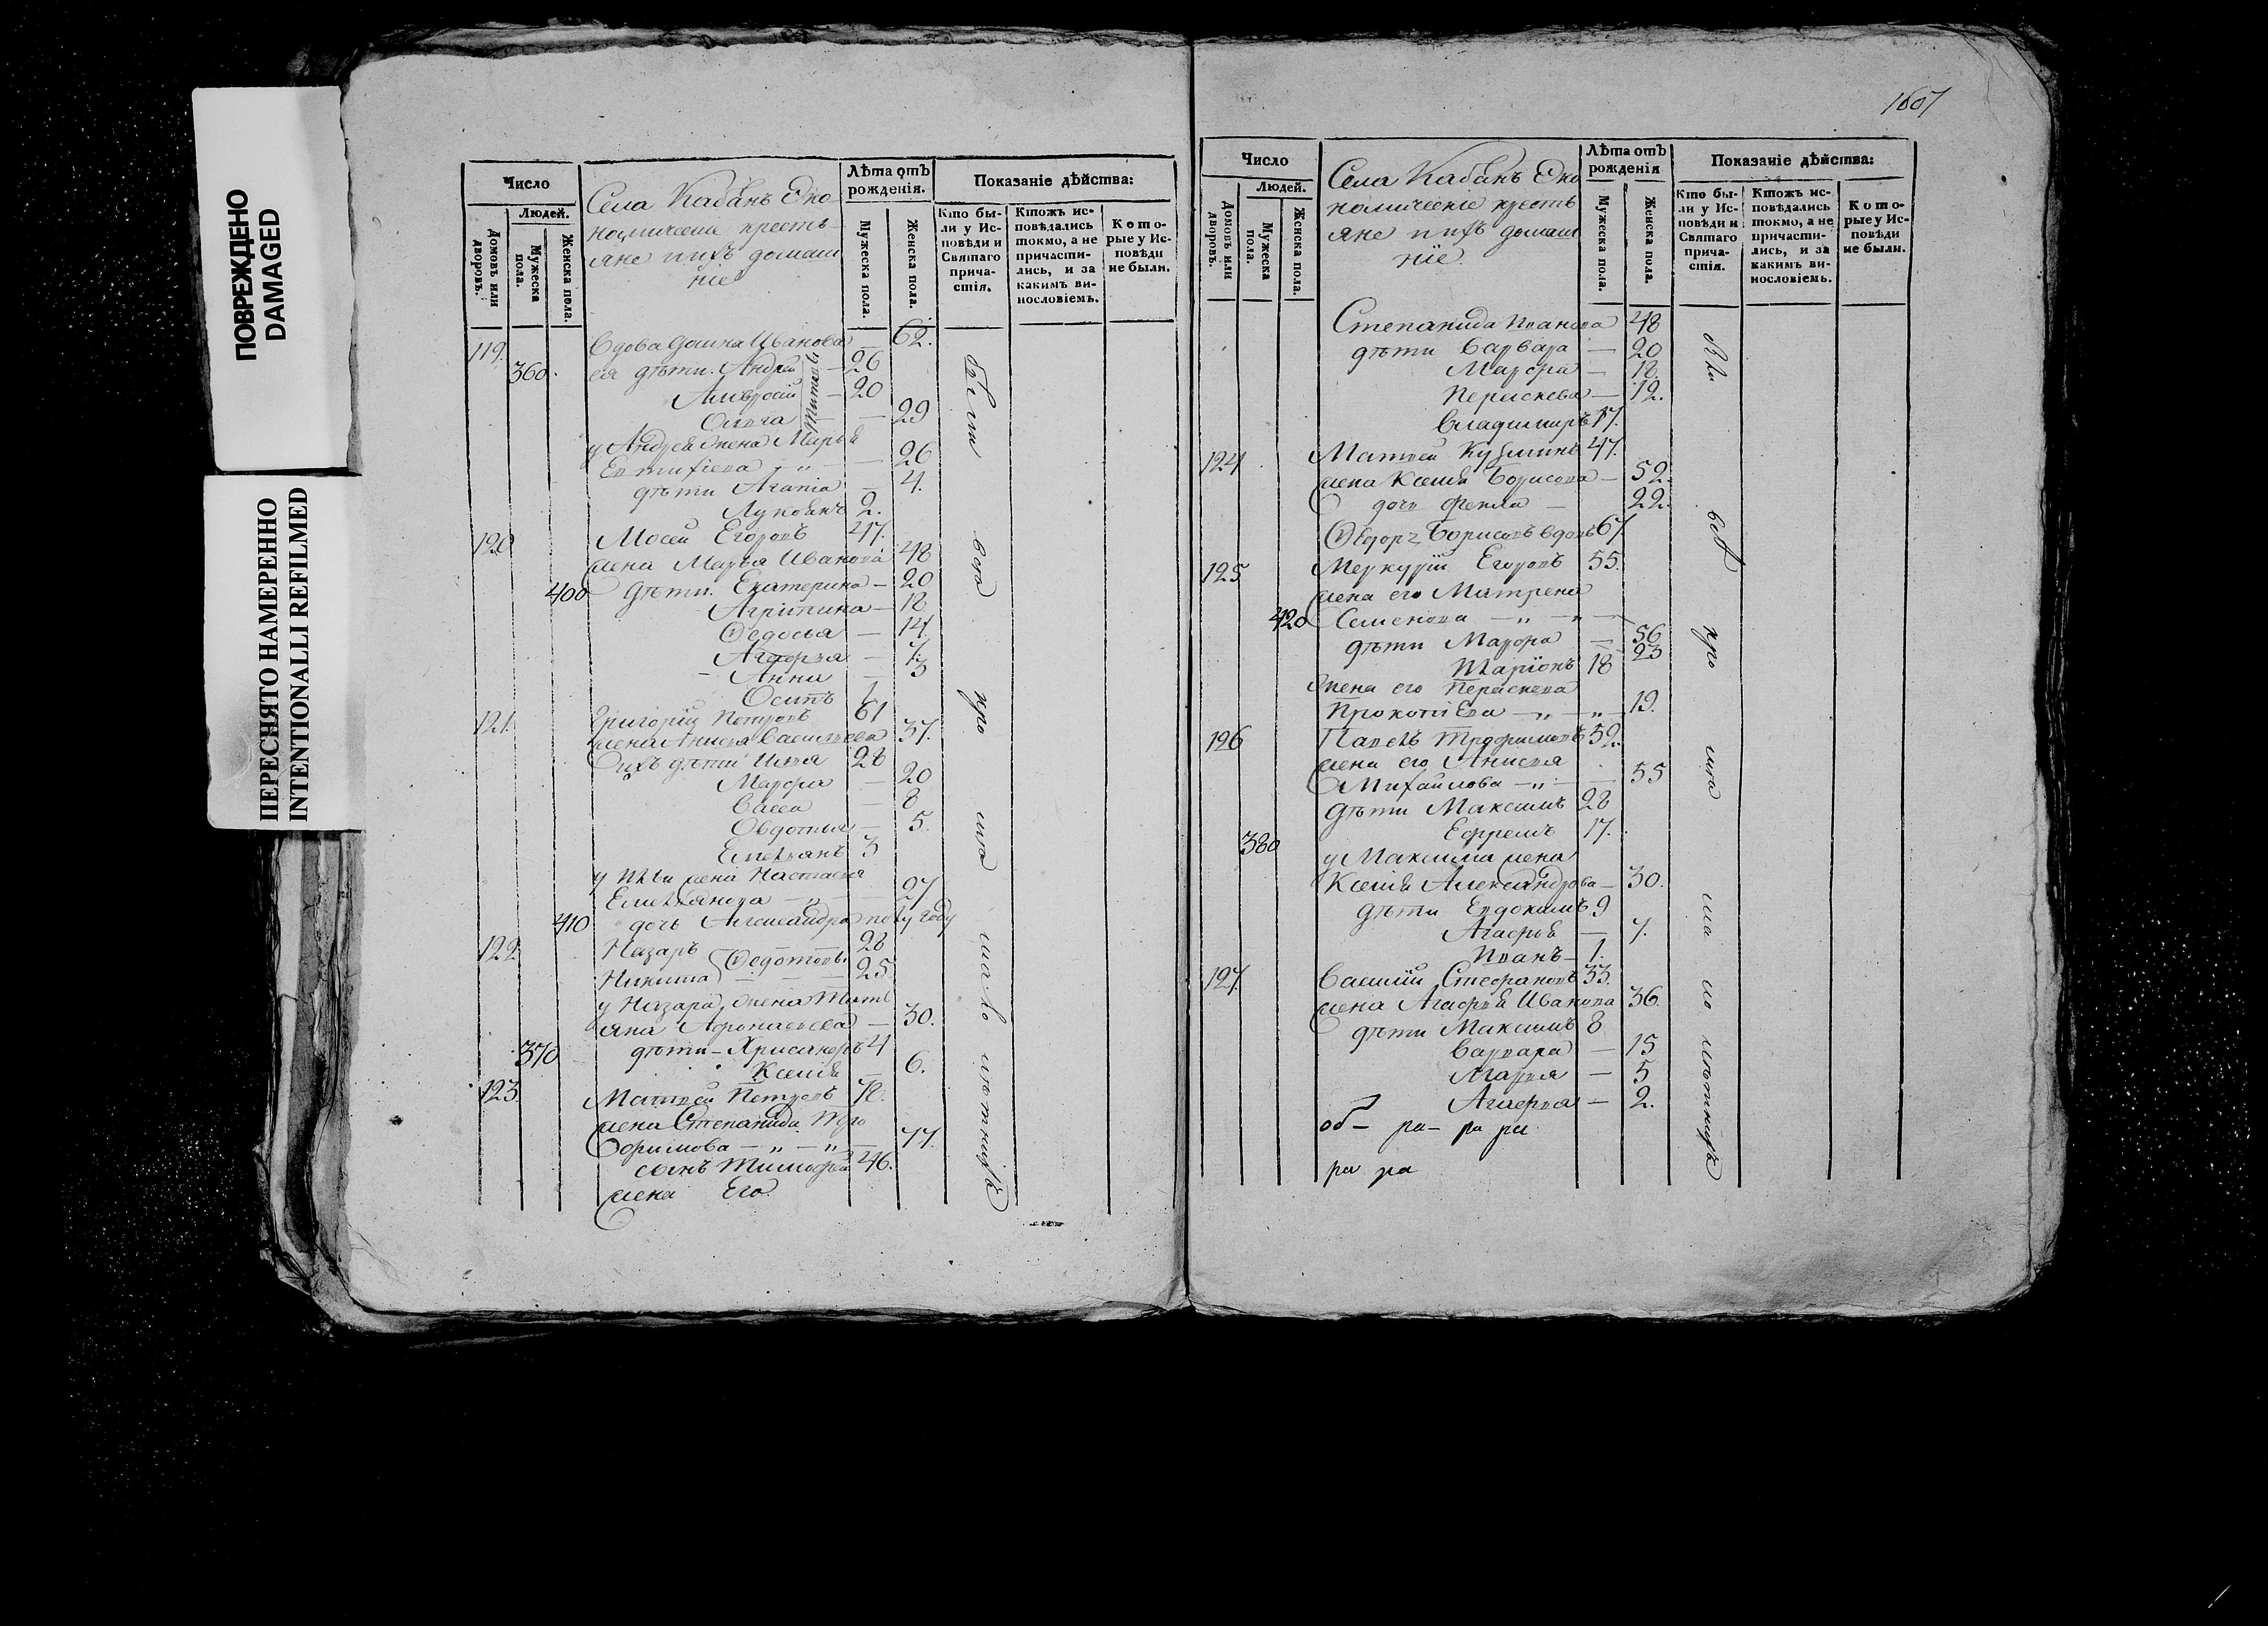 ПОВРЕЖДЕНО
DAMAGED
ПЕРЕСНЯТО НАМЕРЕННО
INTENTIONALLI REFILMED
Число
Людей.
Домовъ или дворовъ.
Мужеска пола.
Женска пола.
Села Кабанъ Эко
номическіе кресть
яне и ихъ домаш
ніе
Лѣта отъ рожденія.
Мужеска пола.
Женска пола.
Показаніе дѣйства:
Кто бы-
ли у Ис-
повѣди и
Святаго
прича-
стія.
Ктожъ ис-
повѣдались
токмо, а не
причасти-
лись, и за
какимъ ви-
нословіемъ.
Кото-
рые у Ис-
повѣди
не были.
119. Вдова Иванова — 62.
360. ея дѣти. Андрей — 26
Амвросій — 20
Ольга — 29
у Андрея жена Марья
Евтифіева — „ — 26
дѣти Агапіа — 4.
Лукіанъ 2.
120 Мосей Егоровъ 47.
жена Марья Иванова 48
400 дѣти. Екатерина — 20
Агрипина — 18
Ѳедосья — 14
Агафья — 7.
Анна — 3
Осипъ 1
121. Григорій Петровъ 61
жена Анисья Васильева 37.
ихъ дѣти Илья 28
Марфа — 20
Васса — 8
Овдотья — 5.
Емельянъ 3
у Ильи жена Настасья
Емельянова — „ — 27
410 дочь Александра полу году
122. Назаръ Ѳедотовъ 28
Никита — 25
у Назара жена Тать
яна Афонасьева — 30.
370 дѣти — Хрисанфъ 4
Ксенія — 6.
123. Матвей Петровъ 78.
жена Степанида Тро
фимова — „ — „ — 77.
сынъ Тимофей 46.
жена Его
были
вси
про
ша
ма
ло
лѣтнихъ
1607
Число
Людей.
Домовъ или дворовъ.
Мужеска пола.
Женска пола.
Села Кабанъ Эко
номическіе кресть
яне и ихъ домаш
ніе.
Лѣта отъ рожденія
Мужеска пола.
Женска пола.
Показаніе дѣйства:
Кто бы-
ли у Ис-
повѣди и
Святаго
прича-
стія.
Ктожъ ис-
повѣдались
токмо, а не
причасти-
лись, и за
какимъ ви-
нословіемъ.
Кото-
рые у Ис-
повѣди
не были.
Степанида Иванова 48
дѣти Варвара — 20
Марфа — 18.
Пераскева — 12.
Владимиръ 17.
124 Матвей Кузминъ 47.
жена Ксенія Борисова — 52.
дочь Фекла — 22.
Ѳедоръ Борисовъ вдовъ 67
125 Меркурій Егоровъ 55.
жена его Матрена
420 Семенова — „ — „ — 56
дѣти Марфа — 23
Иларіонъ 18
жена его Пераскева
Прокопіева — „ — „ — 19.
126 Павелъ Трофимовъ 59.
жена его Анисья
Михайлова — „ — 55
дѣти Максимъ 28
380 Ефремъ 17.
у Максима жена
Ксенія Александрова — 30.
дѣти Евдокимъ 9
Агафья — 7.
Иванъ — 1.
127. Василій Стефановъ 33.
жена Агафья Иванова 36.
дѣти Максимъ 8
Варвара — 15
Марья — 5
Агафья — 2.
об — ра — ра ра
ра ра
всѣ
про
ма
ло
лѣтнихъ